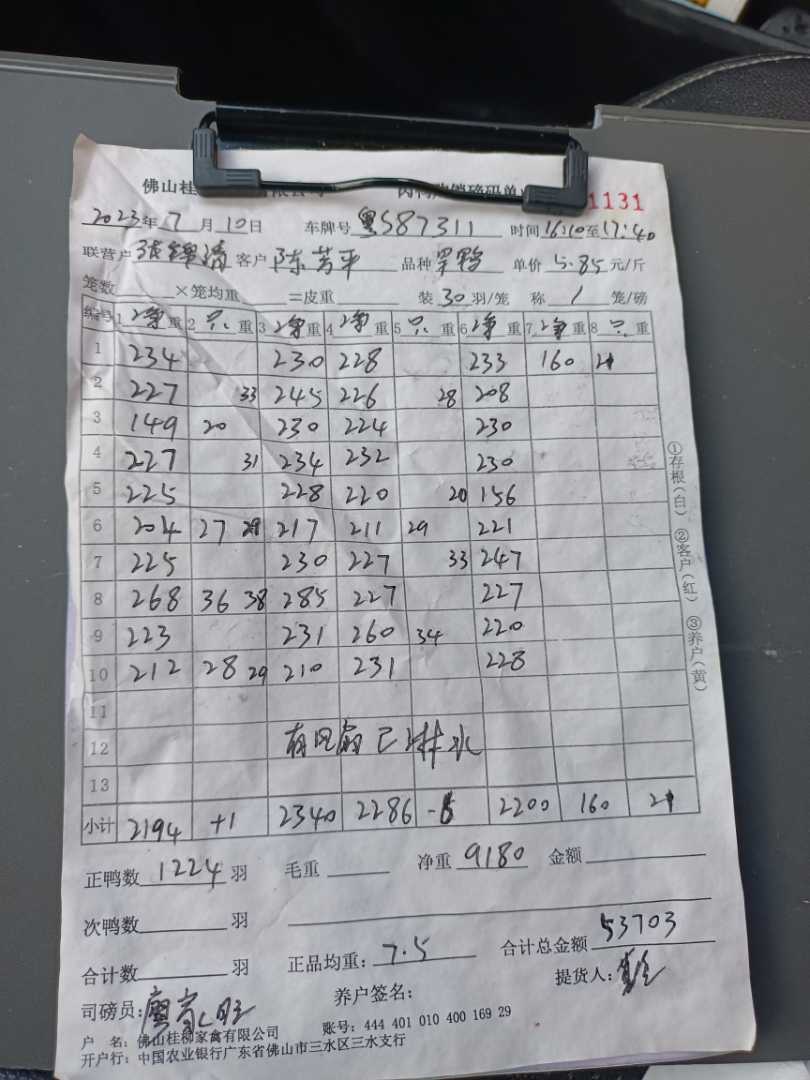 佛山桂 有限公司 肉鸭购销磅码单 1131
2023年7月10日 车牌号 粤S87311 时间16:10至17:40
联营户 客户 陈芳平 品种 单价 5.85 元/斤
笼数 ×笼均重 =皮重 装30羽/笼 称 1 笼/磅
编号 1 净重 2 只 重 3 净重 4 净重 5 只 重 6 净重 7 净重 8 只 重
1 234 230 228 233 160 21
2 227 33 245 226 28 208
3 149 20 230 224 230
4 227 31 234 232 230
5 225 228 220 20 156
6 204 27 29 217 211 29 221
7 225 230 227 33 247
8 268 36 38 285 227 227
9 223 231 260 34 220
10 212 28 29 210 231 228
11
12 有风扇已淋水
13
小计 2194 +1 2340 2286 2200 160 21
①存根(白) ②客户(红) ③养户(黄)
正鸭数 1224 羽 毛重 净重 9180 金额
次鸭数 羽
合计数 羽 正品均重: 7.5 合计总金额 53703
司磅员: 养户签名: 提货人:
户 名: 佛山桂柳家禽有限公司 账号: 444 401 010 400 169 29
开户行: 中国农业银行广东省佛山市三水区三水支行